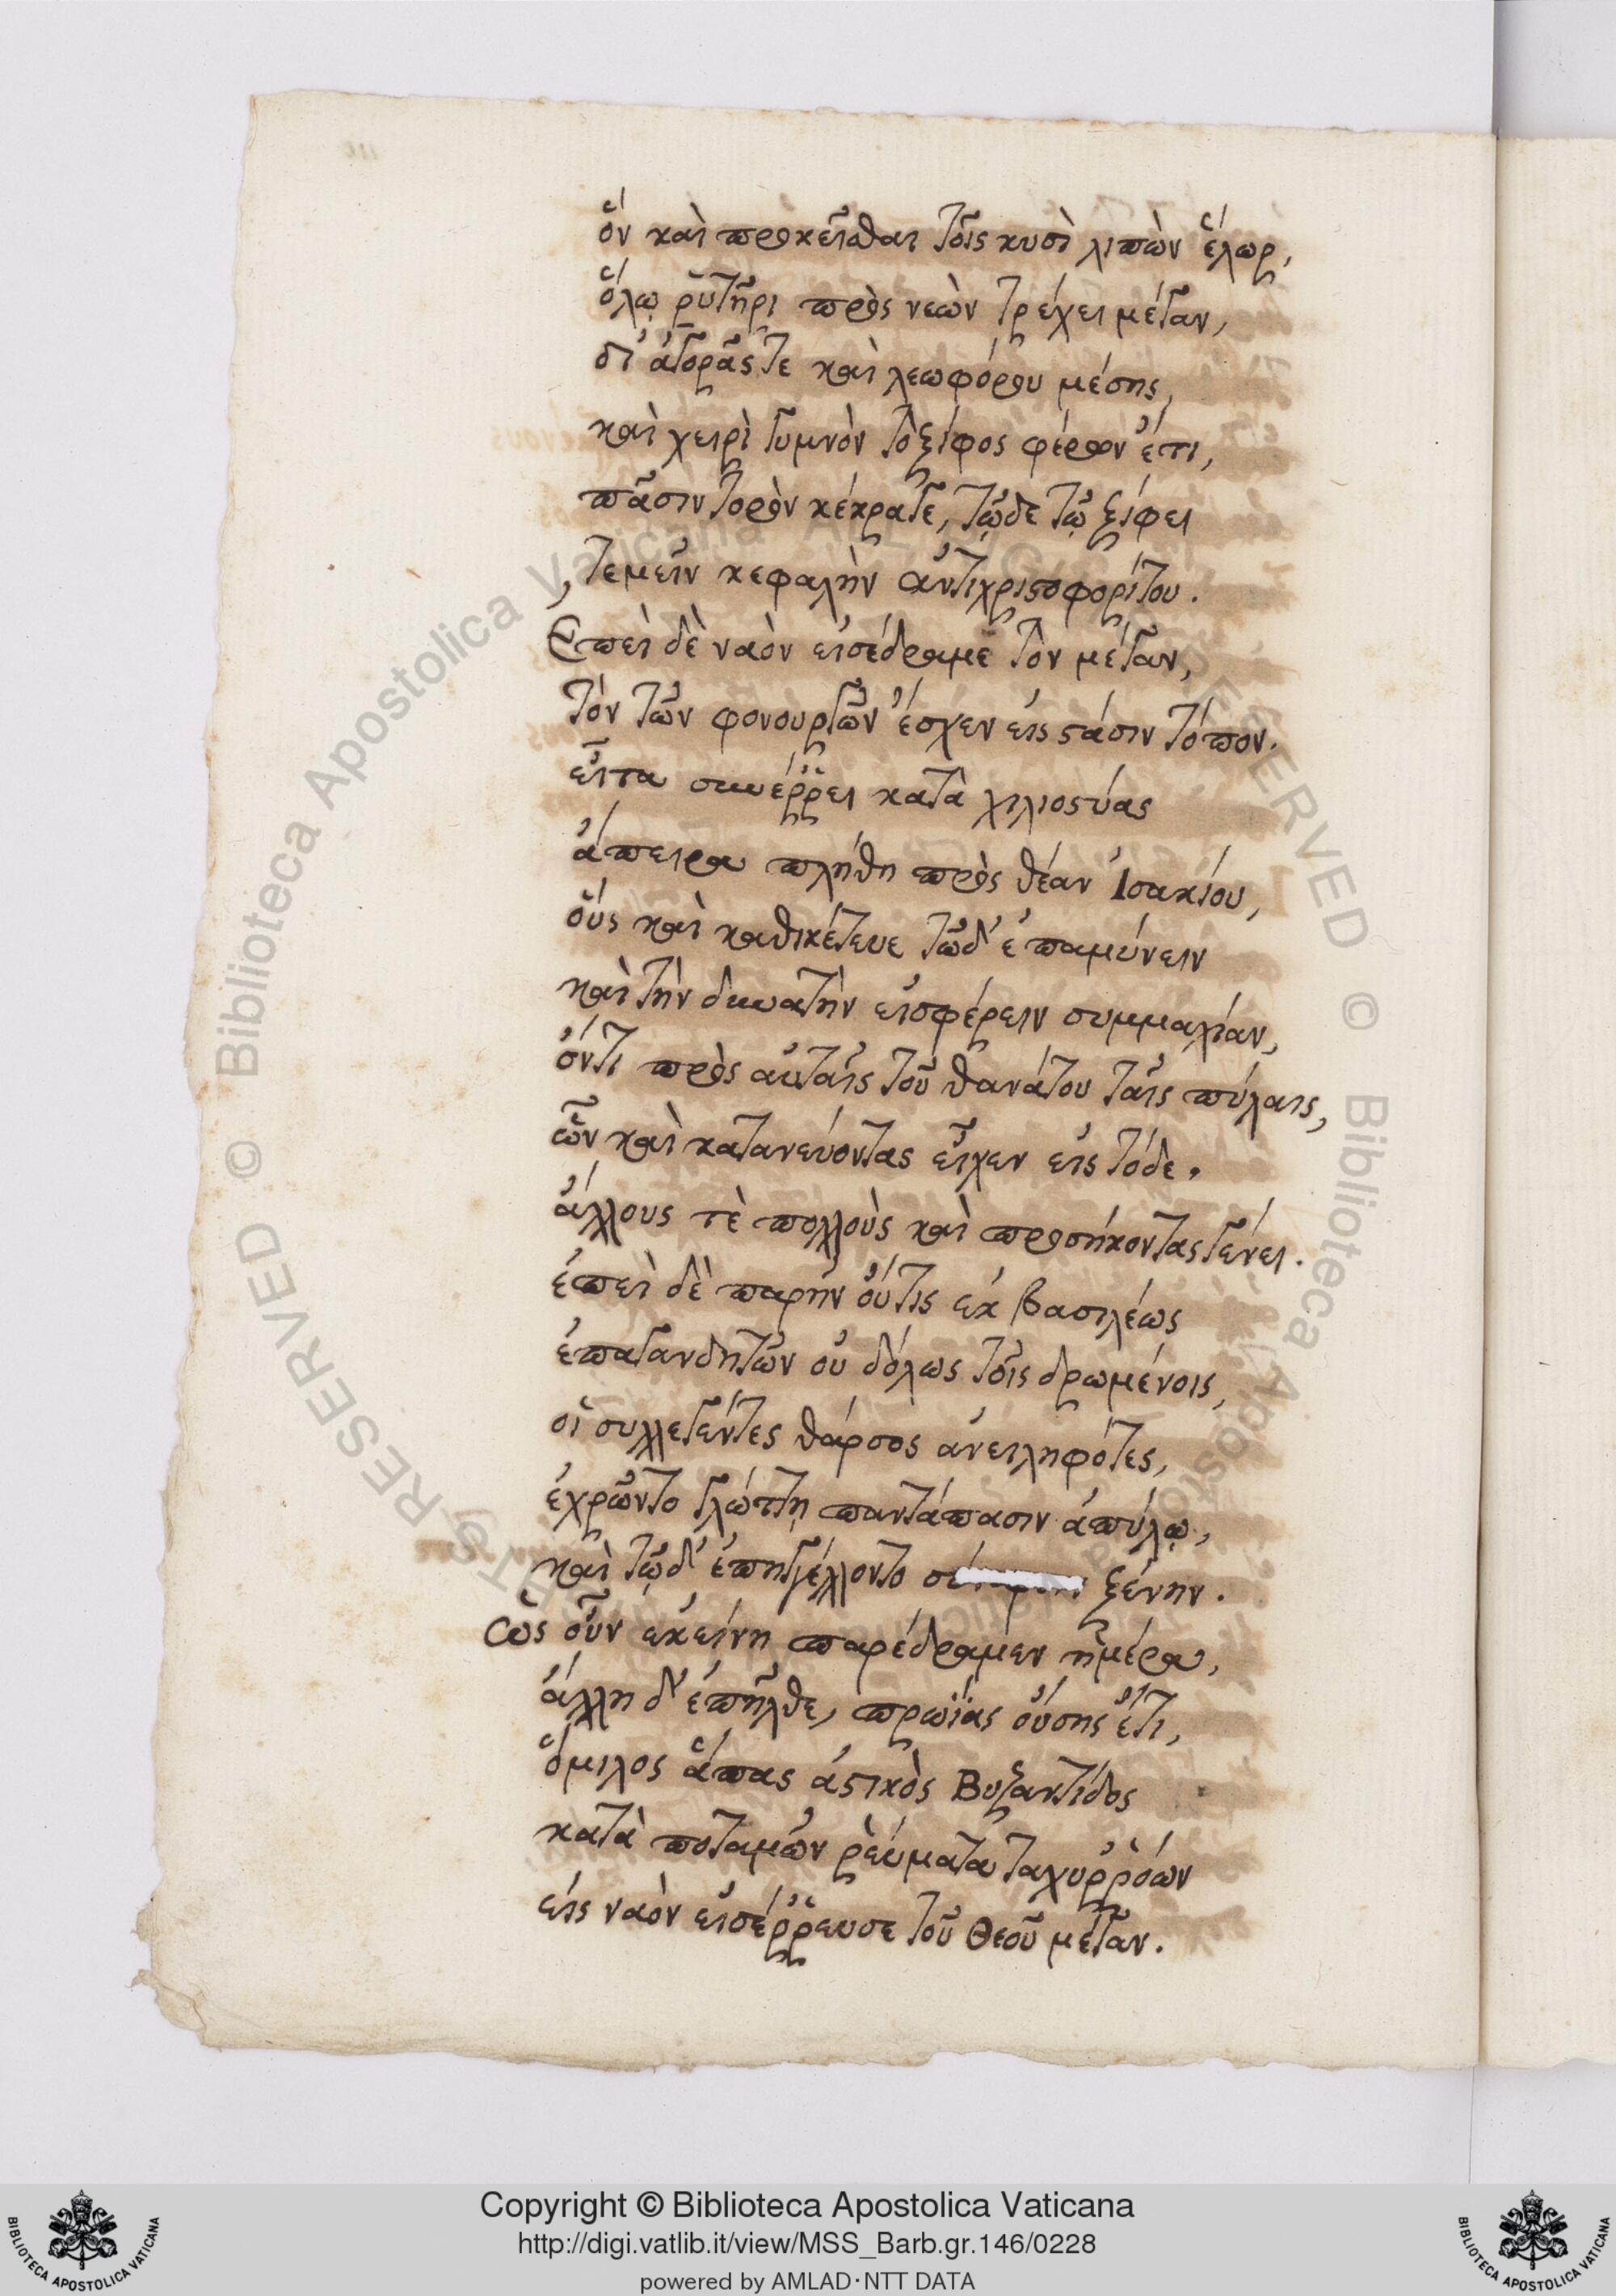 ὃν καὶ προκεῖσθαι τοῖς κυσὶ λιπὼν ἕλωρ,
ὅλῳ ῥυτῆρι πρὸς νεὼν τρέχει μέγαν,
δι' ἀγορᾶς τε καὶ λεωφόρου μέσης,
καὶ χειρὶ γυμνὸν τὸ ξίφος φέρων ἔτι,
πᾶσιν τορὸν κέκραγε, τῷδε τῷ ξίφει
τεμεῖν κεφαλὴν ἀντιχριστοφορίτου.
Ἐπεὶ δὲ ναὸν εἰσέδραμε τὸν μέγαν,
τὸν τῶν φονουργῶν ἔσχεν εἰς στάσιν τόπον.
εἶτα συνέῤῥει κατὰ χιλιοστύας
ἄπειρα πλήθη πρὸς θέαν Ἰσακίου,
οὓς καὶ καθικέτευε τῶδ' ἐπαμύνειν
καὶ τὴν δυνατὴν εἰσφέρειν συμμαχίαν,
ὄντι πρὸς αὐταῖς τοῦ θανάτου ταῖς πύλαις,
ὧν καὶ κατανεύοντας εἶχεν εἰς τόδε.
ἄλλους τὲ πολλοὺς καὶ προσήκοντας γένει.
ἐπεὶ δὲ παρῆν οὔτις ἐκ βασιλέως
ἐπαγανακτῶν οὐ δόλως τοῖς δρωμένοις,
οἱ συλλεγέντες θάρσος ἀνειληφότες,
ἐχρῶντο γλώττῃ παντάπασιν ἀπύλῳ,
καὶ τῷδ' ἐπηγγέλλοντο ξένην.
Ὡς οὖν ἐκείνη παρέδραμεν ἡμέρα,
ἄλλη δ' ἐπῆλθε, πρωΐας οὔσης ἔτι,
ὅμιλος ἅπας ἀστικὸς Βυζαντίδος
κατὰ ποταμῶν ῥεύματα ταχυῤῥόων
εἰς ναὸν εἰσέῤῥευσε τοῦ Θεοῦ μέγαν.
© Biblioteca Apostolica Vaticana
RIGHTS RESERVED
Copyright © Biblioteca Apostolica Vaticana
http://digi.vatlib.it/view/MSS_Barb.gr.146/0228
powered by AMLAD·NTT DATA
BIBLIOTECA APOSTOLICA VATICANA
BIBLIOTECA APOSTOLICA VATICANA